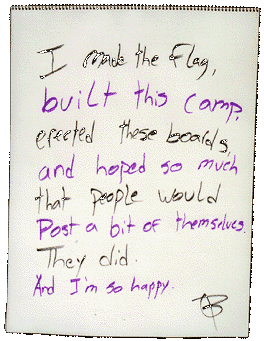 I made the Flag,
built this camp,
erected these boards,
and hoped so much
that people would
Post a bit of themselves.
They did.
And I'm so happy.